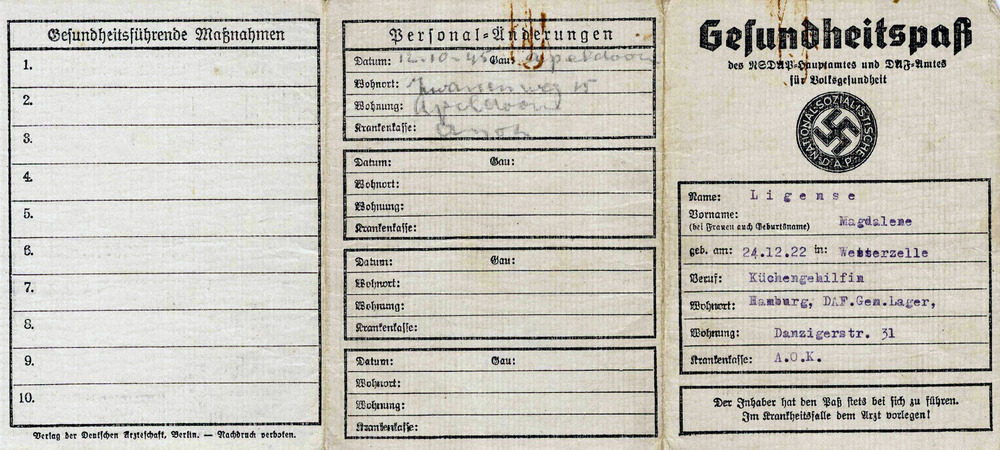 Gesundheitsführende Maßnahmen
1.
2.
3.
4.
5.
6.
7.
8.
9.
10.
Verlag der Deutschen Ärzteschaft, Berlin. — Nachdruck verboten.
Personal-Änderungen
Datum: 12-10-45 Gau: Apeldoorn
Wohnort: 15
Wohnung: Apeldoorn
Krankenkasse:
Datum: Gau:
Wohnort:
Wohnung:
Krankenkasse:
Datum: Gau:
Wohnort:
Wohnung:
Krankenkasse:
Datum: Gau:
Wohnort:
Wohnung:
Krankenkasse:
Gesundheitspaß
des NSDAP-Hauptamtes und DAF-Amtes
für Volksgesundheit
NATIONAL-SOZIALISTISCHE-D·A·P·
Name: Ligense
Vorname: Magdalene
(bei Frauen auch Geburtsname)
geb. am: 24.12.22 in: Westerzelle
Beruf: Küchengehilfin
Wohnort: Hamburg, DAF.Gem.Lager,
Wohnung: Danzigerstr. 31
Krankenkasse: A.O.K.
Der Inhaber hat den Paß stets bei sich zu führen.
Im Krankheitsfalle dem Arzt vorlegen!